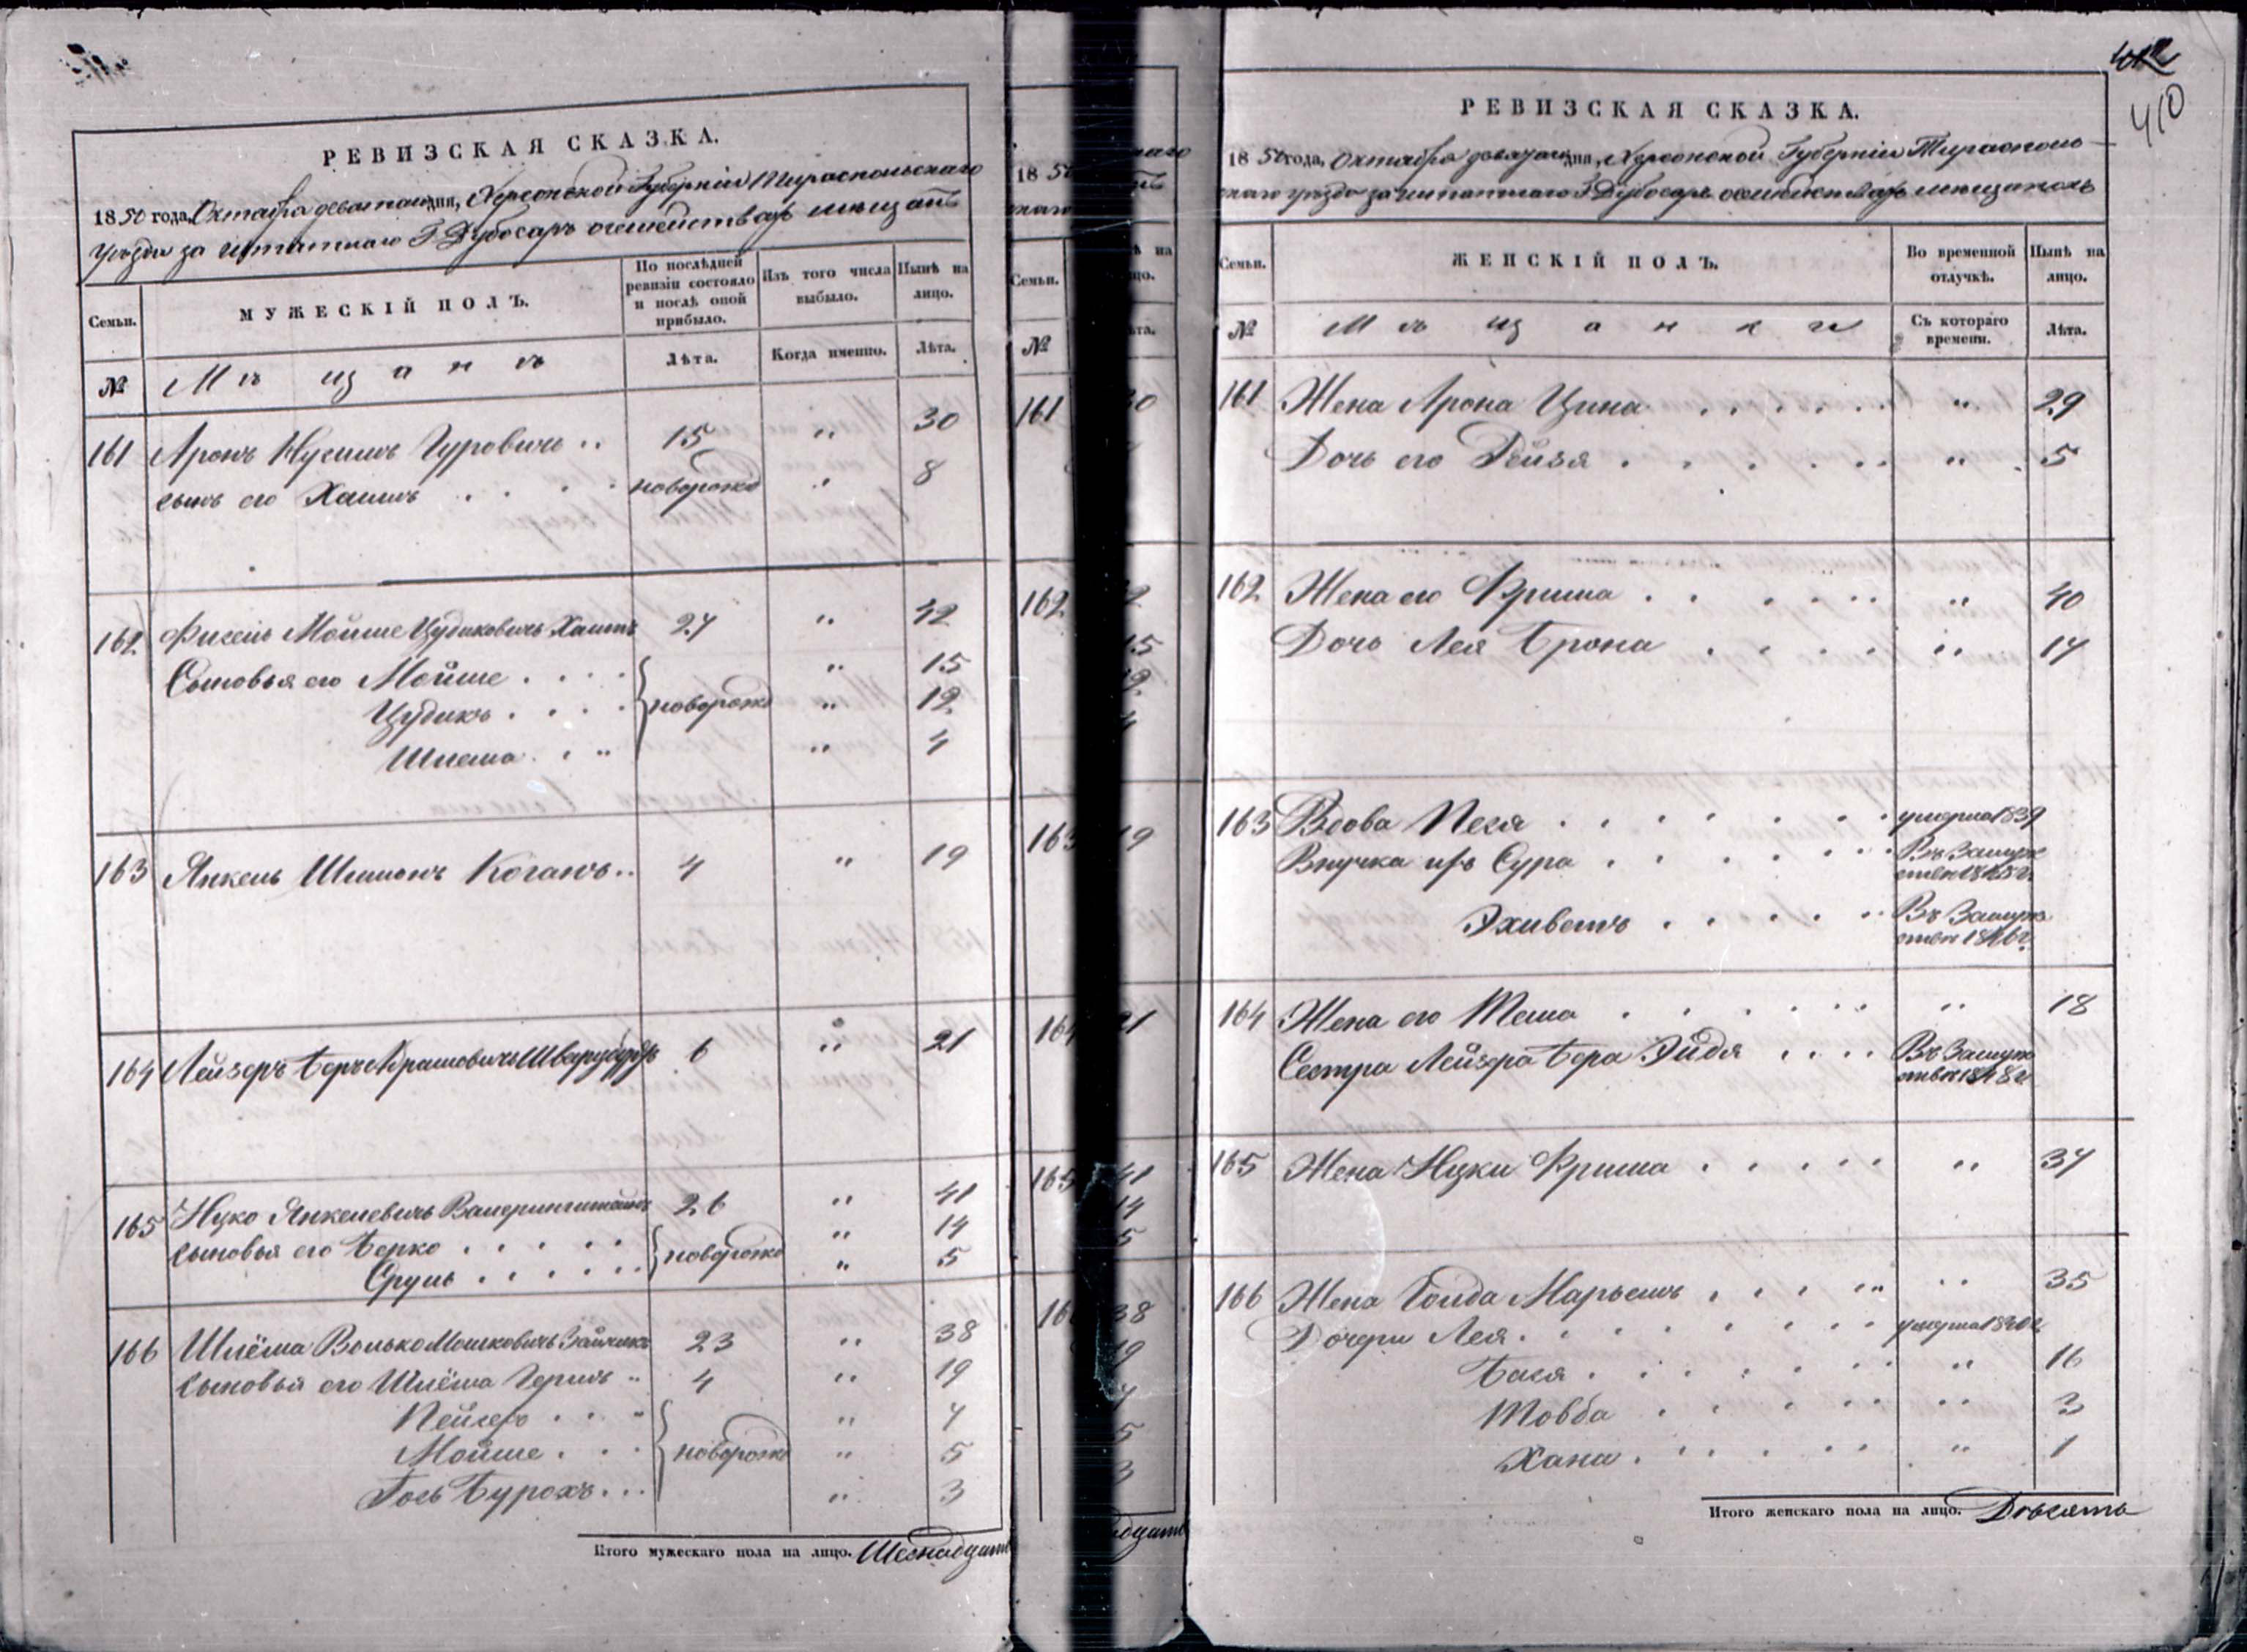 РЕВИЗСКАЯ СКАЗКА.
1850 года, Октября девятаго дня, Херсонской Губерніи Тираспольскаго
Уѣзда заштатнаго Г. Дубосаръ о семействахъ мѣщанъ
Семьи.
МУЖЕСКІЙ ПОЛЪ.
По послѣдней ревизіи состояло и послѣ оной прибыло.
Изъ того числа выбыло.
Нынѣ на лицо.
№
Мѣщанъ
Лѣта.
Когда именно.
Лѣта.
161 Аронъ Нусимъ Гуровичъ .. 15 " 30
сынъ его Хаимъ . . . . новорожд " 8
162 Фишель Мойше Цудиковичъ Хаитъ 27 " 42
Сыновья его Мойше . . . . новорожд " 15
Цудикъ . . . . " 12
Шлема . . " " 4
163 Янкель Шлимонъ Коганъ .. 4 " 19
164 Лейзеръ Беръ Абрамовичъ 6 " 21
165 Нуко Янкелевичъ 26 " 41
сыновья его Берко . . . . . новорожд " 14
Сруль . . . . . . " 5
166 Шлёма Волько Мошковичъ Зайчикъ 23 " 38
сыновья его Шлёма Гершъ .. 4 " 19
Пейсехъ . . . новорожд " 7
Мойше . . . " 5
Бурохъ ... " 3
Итого мужескаго пола на лицо. Шеснадцать
1850
Семьи.
№
161 30
162 42
15
12
4
163 19
164 21
165 41
14
5
166 38
19
7
5
3
410
РЕВИЗСКАЯ СКАЗКА.
1850 года, Октября девятаго дня, Херсонской Губерніи Тирасполь-
скаго уѣзда заштатнаго Г. Дубосаръ о семействахъ мещанокъ
Семьи.
ЖЕНСКІЙ ПОЛЪ.
Во временной отлучкѣ.
Нынѣ на лицо.
№
Мѣщанки
Съ котораго времени.
Лѣта.
161 Жена Арона Цина . . . . . . " 29
Дочь его Рейзя . . . . . . " 5
162 Жена его Фрима . . . . . . " 40
Дочь Лея Брона . . . . . " 17
163 Вдова Песя . . . . . . . умерла 1839
Внучка ихъ Сура . . . . . . Въ замуж
ствѣ 1845 г.
Эхиветъ . . . . . Въ замуж
ствѣ 1846 г.
164 Жена его Тема . . . . . . " 18
Сестра Лейзера Бера Эйдя . . . . Въ замуж
ствѣ 1848 г
165 Жена Нуки Фрима . . . . . " 37
166 Жена Гольда Марьемъ . . . . . " 35
Дочери Лея . . . . . . . . умерла 1840 г.
Бася . . . . . . . " 16
Товба . . . . . . " 3
Хана . . . . . . " 1
Итого женскаго пола на лицо. Дѣвять